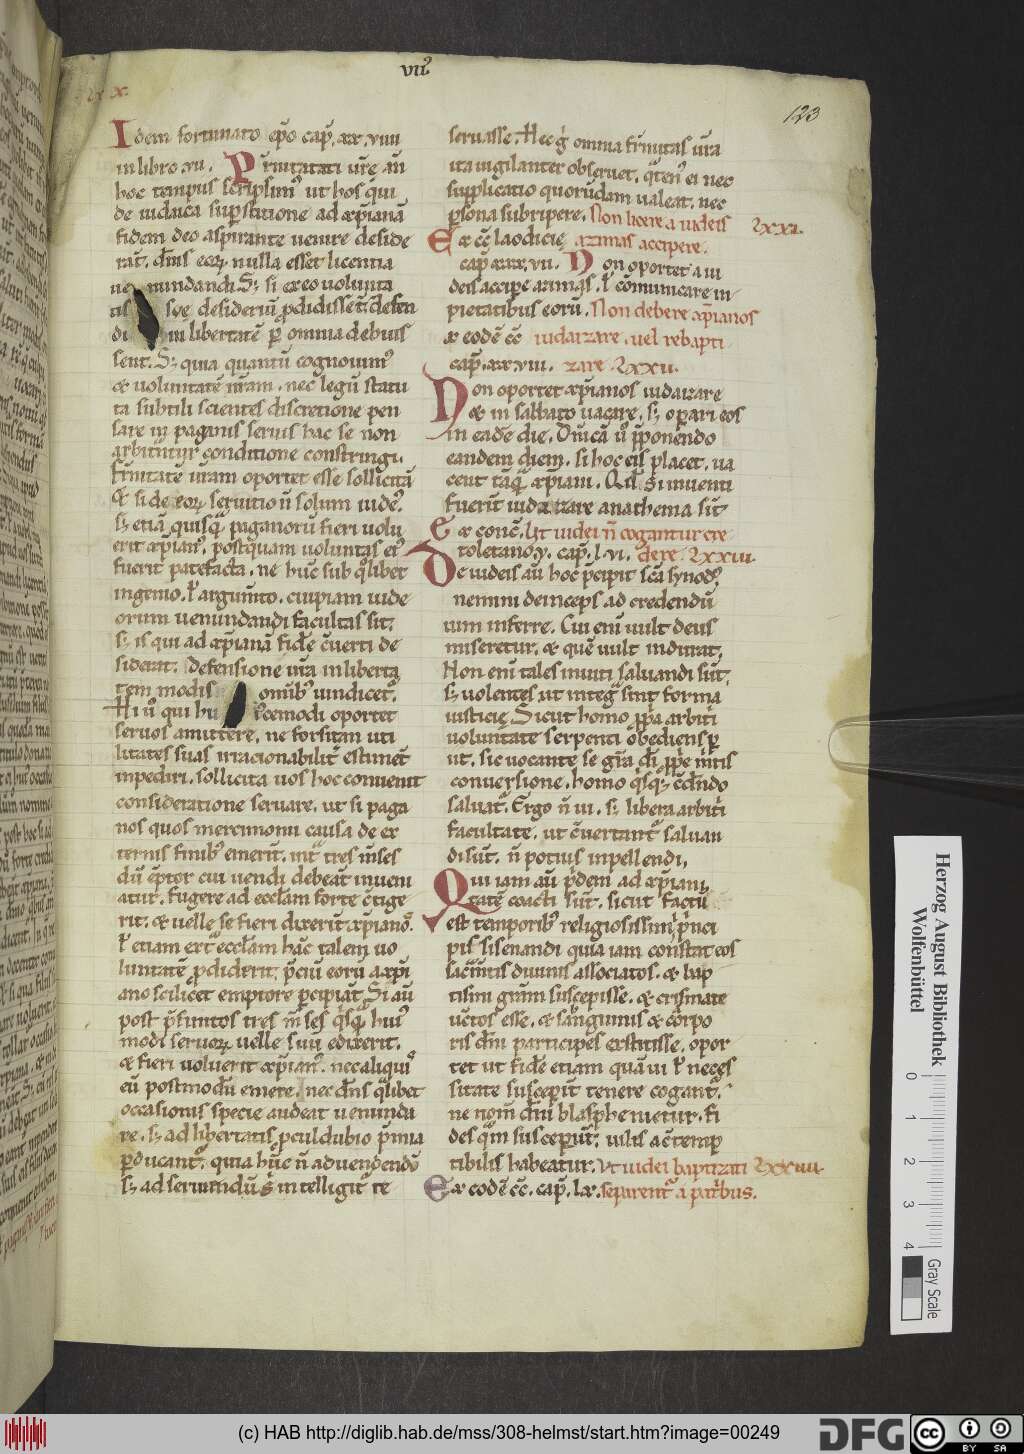 vii
123
Idem fortunato epō cap̄. xx. viiii
in libro. vii. Pr̄nitatati vr̄e. aū
hoc tempus scripsim᾽ ut hos qui
de iudaica sup̄stitione ad xp̄ianā
fidem deo aspirante venire deside
rāt. dn̄is eoꝝ nulla esset licentia
ve nundandi S; si ex eo volunta
tis suę desideriū ꝓdidissēt. defen
di in libertatē ꝑ omnia debuis
sent. S; quia quantū cognovim᾽
& voluntatē nr̄am. nec legū statu
ta subtili scientes discretione pen
sare in paganis servis hac se non
arbitrntur conditione constringi.
fr̄nitatē vr̄am oportet esse sollicitā
& si de eoꝝ servitio n̄ solum iude᾽
s; etiā quisq̄ paganorū fieri volu
erit xp̄ian᾽. postquam voluntas ei᾽
fuerit patefacta. ne hūc sub q̇libet
ingenio. ł argum̄to. cuipiam iude
orum venundandi facultas sit;
s; is qui ad xp̄ianā fidē c̄verti de
siderat. defensione vr̄a in liberta
tem modis omib᾽ vindicet᾽.
Hi v̄ qui hu i᾽cemodi oportet
servos amittere. ne forsitan uti
litates suas irracionabilit̄ estimēt
inpediri. sollicita vos hoc convenit
consideratione servare. ut si paga
nos quos mercimonii causa de ex
ternis finib᾽ emerit. int̄ tres m̄ses
dū ēptor cui vendi debeat inveni
atur. fugere ad eccl̄am forte c̄tige
rit. & velle se fieri dixerit xp̄iano᷒.
ł etiam extͣ eccl̄am hāc talem vo
luntatē ꝓdiderit; p̄ciū eorū a xp̄i
ano scilicet emptore ꝑcipiat. Si aū
post p̄finitos tres m̄ ses q̇sq̄ hui᾽
modi servoꝝ velle suū edixerit.
& fieri voluerit xp̄ian᾽. nec aliqui᷒
eū postmodū emere. nec dn̄s q̇libet
occasionis specie audeat venundu
re. s; ad libertatis ꝓculdubio p̄mia
ꝑducant᾽. quia hūc n̄ ad vendendū
s; ad serviendū s̄ intelligit᾽ re
servasse. Hec ġ omnia fr̄nitas vr̄a
ita vigilanter observet. q̇ten᾽ ei nec
supplicatio quorūdam valeat. nec
ꝑsona subripere. Non licere a iudeis ⁊xxi.
Ex cc̄ laodicię azimas accipere.
cap̄. xxx. vii. Non oportet a iu
deis accipe azimas. ł cōmunicare in
pietatibus eorū. Non debere xp̄ianos
ex eodē cc̄ iudaizare. vel rebapti
cap̄. xx. viii. zare. ⁊xxii.
Non oportet xp̄ianos iudaizare
& in sabbato vacare. s; opari eos
in eadē die. Dn̄icā v̄ p̄ponendo
eandem diem. si hoc eis placet. va
cent tāq̄ xp̄iani. Qd̄ si inventi
fuerīt iudaizare anathema sīt.
Ex conc̄. Ut iudei n̄ cogantur cre
toletano. v. cap̄. l. vi. dere. ⁊xxiii.
De iudeis aū hoc p̄cipit scā synod᾽
nemini deinceps. ad credendū
vim inferre. Cui enī vult deus
miseretur. & quē vult indurat.
Non enī tales inviti salvandi sūt.
s; volentes. ut integͣ sint forma
iusticię. Sicut homo ꝓpͥa arbitͥi
voluntate serpenti obediens ꝑ
iit. sic vocante se gr̄a di᷒ ꝓpͥe m̄tis
conversione. homo q̇sq; c̄dēndo
salvat᾽. Ergo n̄ vi. s; libera arbitͥi
facultate. ut c̄vertant᾽ salvan
di sūt. n̄ potius inpellendi.
Qui iam aū pͥdem ad xp̄iani
tatē coacti sūt. sicut factū
est temporib᾽ religiosissimi pͥnci
pis sisenandi. quia iam constat eos
sacm̄tis divinis associatos. & bap
tismi grā̄m suscepisse. & crismate
uc̄tos esse. & sanguinis & corpo
ris dn̄i participes exstitisse. opor
tet ut fidē etiam quā vi ł neces
sitate susceꝑūt tenere cogant᾽.
ne nom̄ dn̄i blasphemetur. fi
des q̄m susceꝑūt; vilis ac̄temp
tibilis habeatur. Ut iudei baptizati ⁊xxiiii.
Ex eodē cc̄. cap̄. lx. separent᾽ a patͥbus.
Herzog August Bibliothek
Wolfenbüttel
0 1 2 3 4
Gray Scale
(c) HAB http://diglib.hab.de/mss/308-helmst/start.htm?image=00249
DFG
cc BY SA